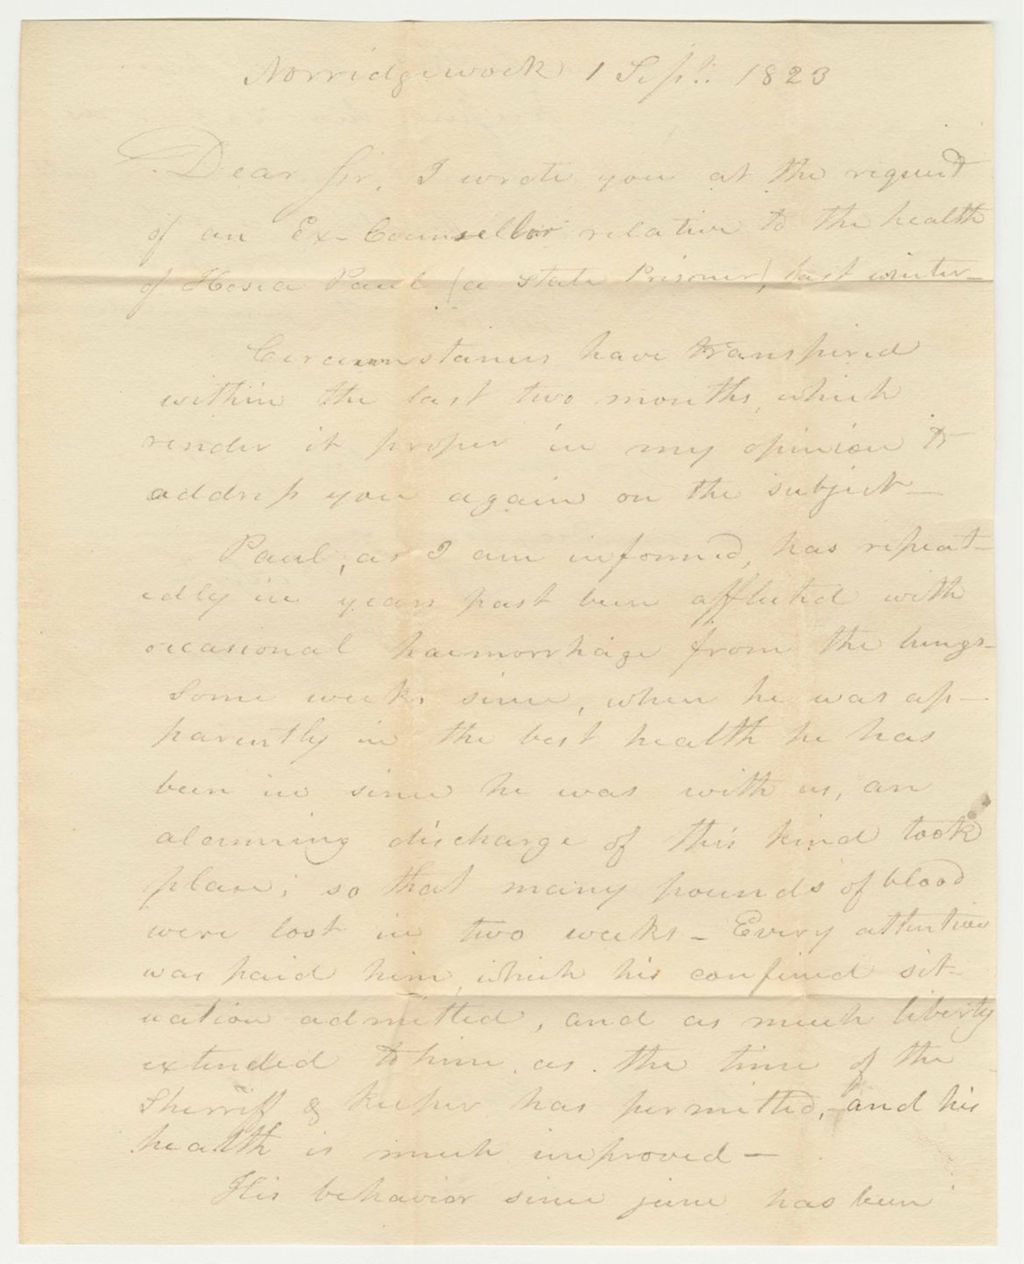 Norridgewock 1 Sept. 1823
Dear Sir, I wrote you at the request
of an Ex-Counsellor relative to the health
of Hosea Paul (a State Prisoner), last winter—
Circumstances have transpired
within the last two months, which
render it proper in my opinion to
address you again on the subject—
Paul, as I am informed, has repeat-
edly in years past been afflicted with
occasional haemorrhage from the lungs—
Some weeks since, when he was ap-
parently in the best health he has
been in since he was with us, an
alarming discharge of this kind took
place; so that many pounds of blood
were lost in two weeks— Every attention
was paid him, which his confined sit-
uation admitted, and as much liberty
extended to him as the time of the
Sherriff & keeper has permitted, and his
health is much improved—
His behavior since june has been